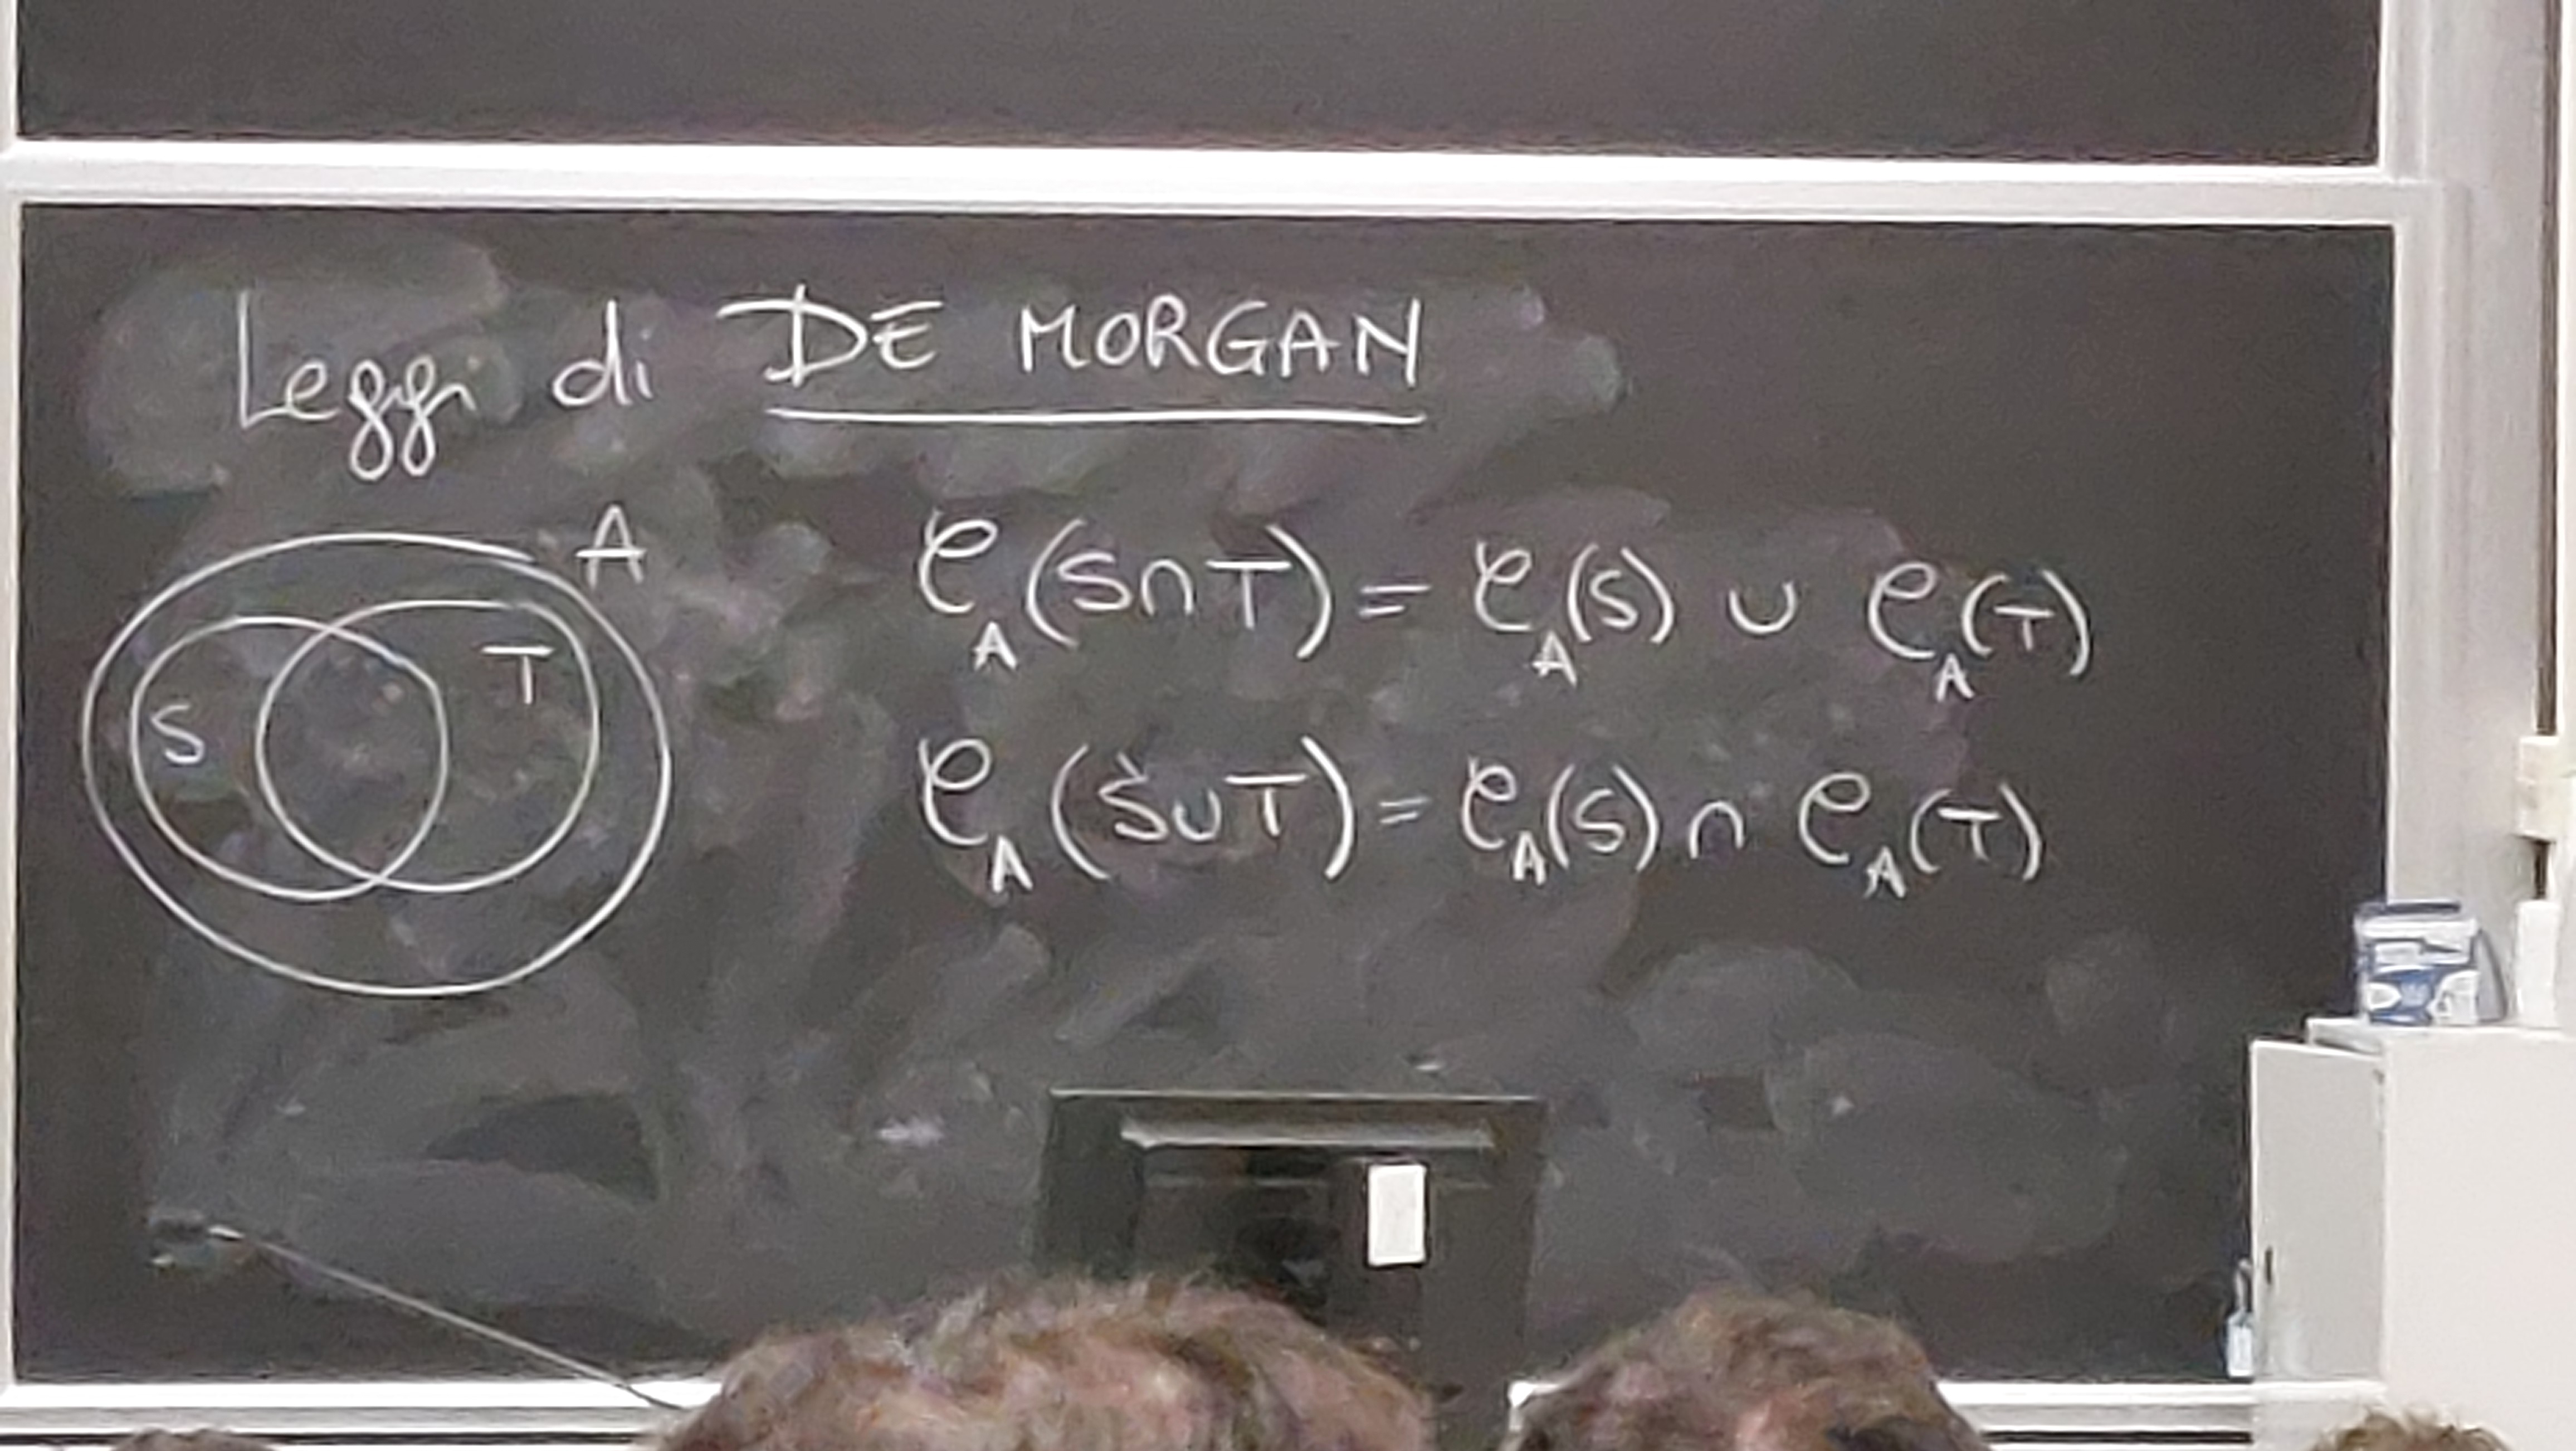 Leggi di DE MORGAN
A
S
T
𝒞_A (S∩T) = 𝒞_A(S) ∪ 𝒞_A(T)
𝒞_A (S∪T) = 𝒞_A(S) ∩ 𝒞_A(T)